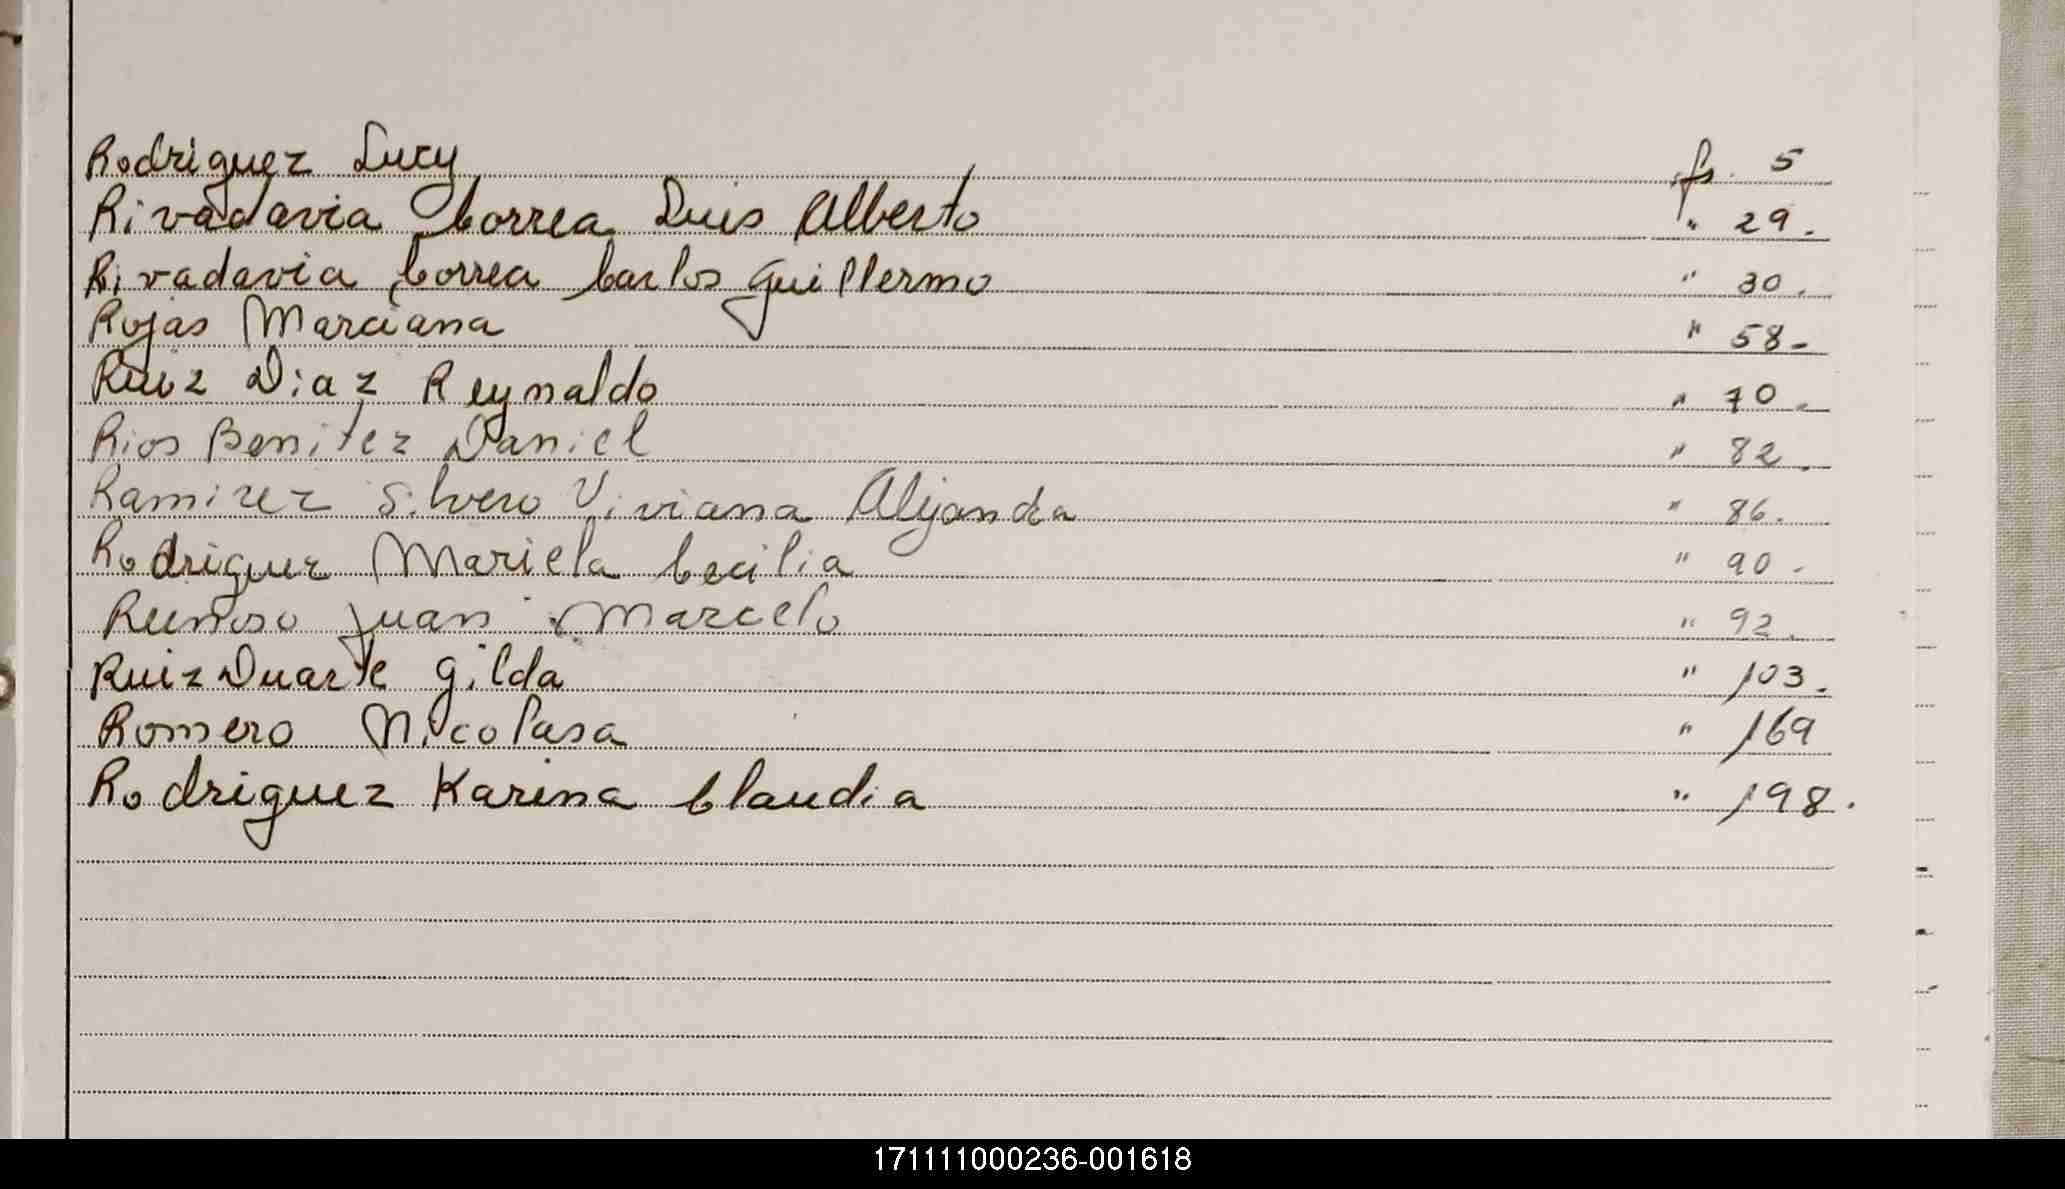 Rodriguez Lucy fs. 5
Rivadavia Correa Luis Alberto " 29.
Rivadavia Correa Carlos Guillermo " 30.
Rojas Marciana " 58-
Ruiz Diaz Reynaldo " 70.
Rios Benitez Daniel " 82.
Ramirez Silvero Viviana Alejandra " 86.
Rodriguez Mariela Cecilia " 90.
Juan Marcelo " 92.
Ruiz Duarte Gilda " 103.
Romero Nicolasa " 169
Rodriguez Karina Claudia " 198.
171111000236-001618